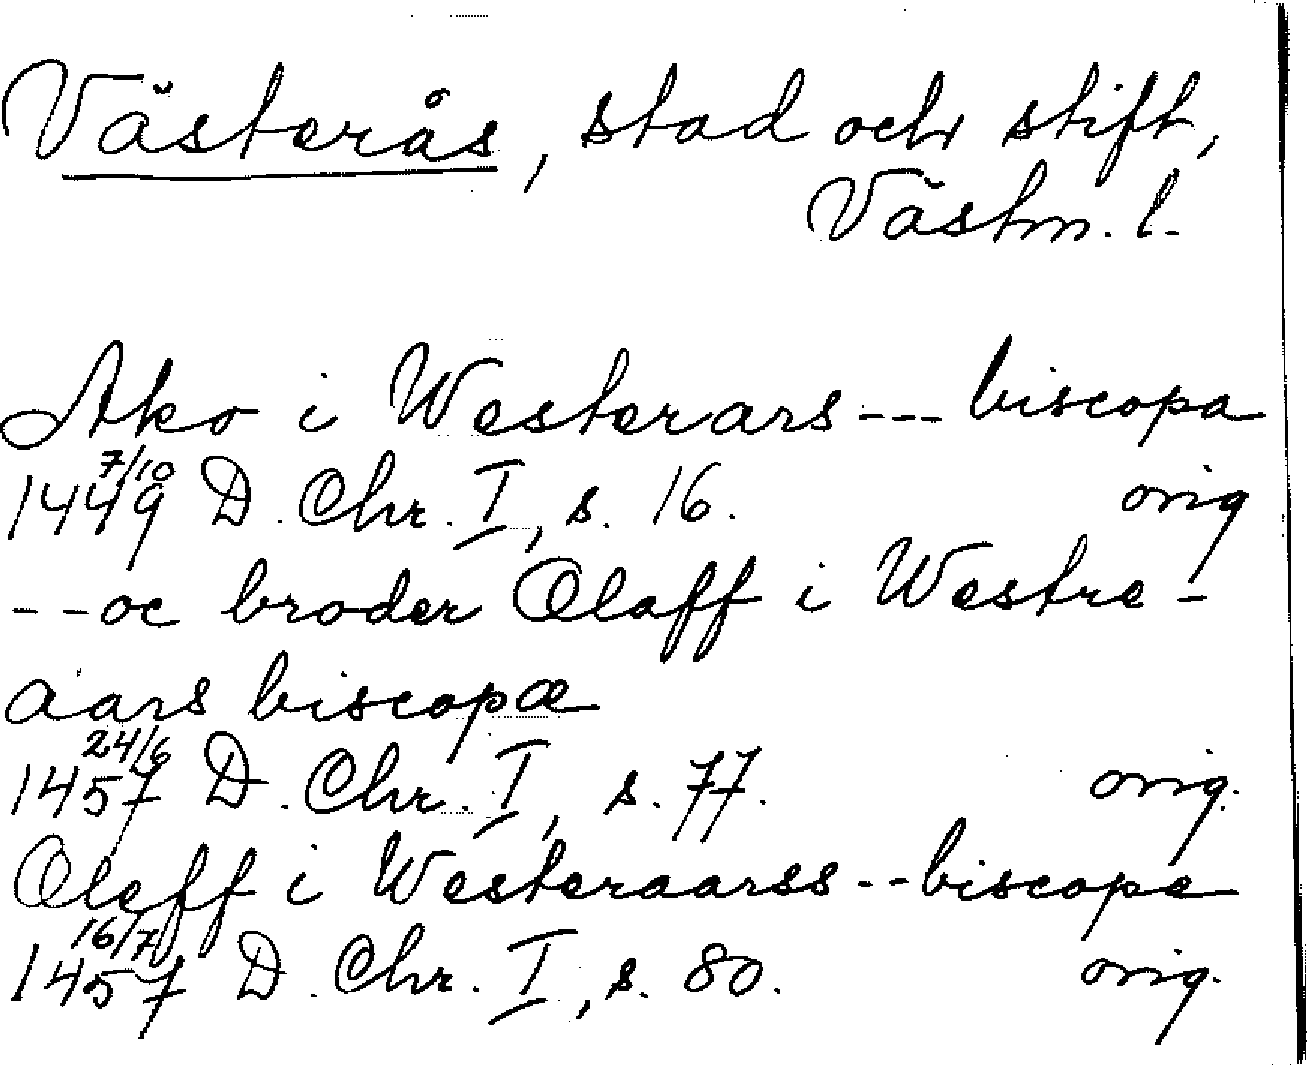 Västerås, stad och stift,
Västm. l.
Ako i Westerars --- biscopa
1449 7/10 D. Chr. I, s. 16. orig
-- oc broder Olaff i Westre-
aars biscopæ
1457 24/6 D. Chr. I, s. 77. orig.
Oleff i Westeraarss -- biscope
1457 16/7 D. Chr. I, s. 80. orig.